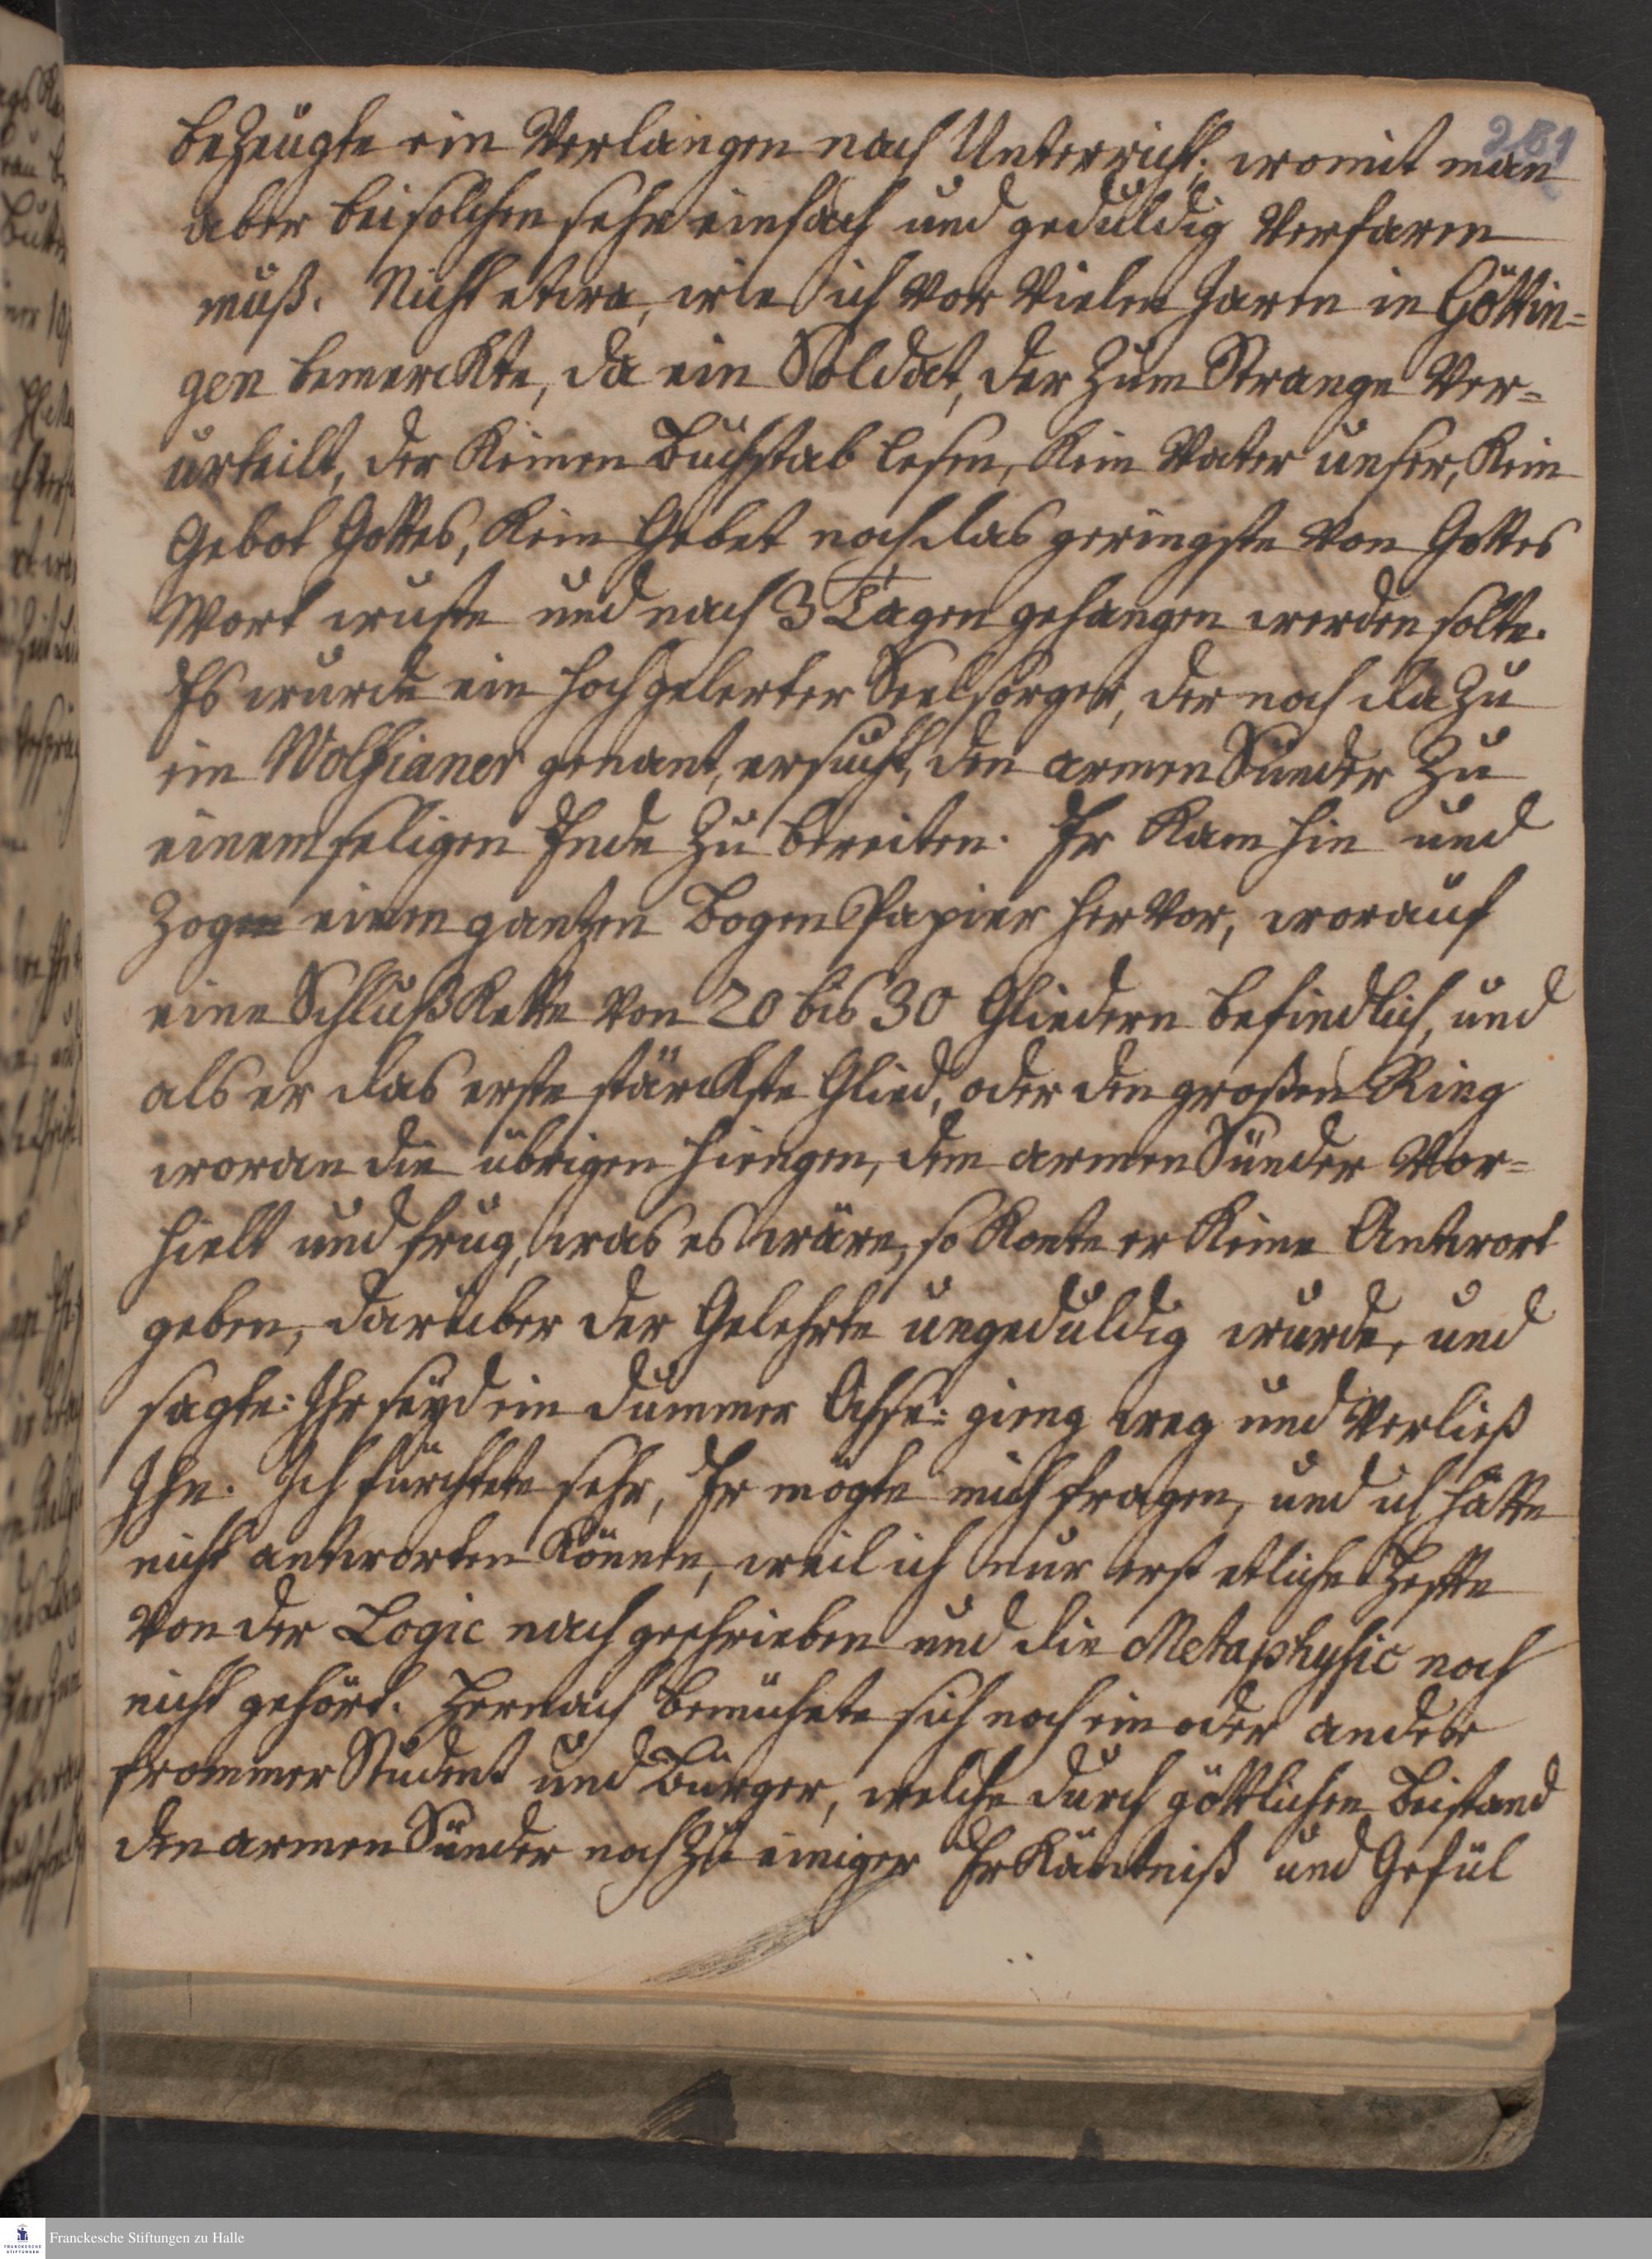 281
bezeugte ein Verlangen nach Unterricht; womit man
aber bei solchen sehr einfach und geduldig verfaren
muß. Nicht etwa, wie ich vor vielen Jaren in Göttin=
gen bemerckte, da ein Soldat, der zum Strange ver=
urteilt, der keinen Buchstab lesen, kein Vater unser, kein
Gebot Gottes, kein Gebet noch das geringste von Gottes
Wort wuste und nach 3 Tagen gehangen werden solte.
Es wurde ein hochgelerter Seelsorger, der noch dazu
ein Wolfianer genant, ersucht, den armen Sünder zu
einem seligen Ende zu bereiten. Er kam hin und
zog einen gantzen Bogen Papier hervor, worauf
eine Schluß Kette von 20 bis 30 Gliedern befindlich, und
als er das erste stärckste Glied, oder den großen Ring
woran die übrigen hiengen, dem armen Sünder vor=
hielt und frug, was es wäre, so konte er keine Antwort
geben, darüber der Gelehrte ungeduldig wurde, und
sagte: Ihr seyd ein dummer Ochse: gieng weg und verließ
Ihn. Ich fürchtete sehr, Er mögte mich fragen, und ich hätte
nicht antworten können, weil ich nur erst etliche Hefte
von der Logic nachgeschrieben und die Metaphysic noch
nicht gehört. Hernach bemühete sich noch ein oder andere
frommer Student und Bürger, welche durch göttlichen Beistand
den armen Sünder noch zu einiger Erkäntniß und Gefül
Franckesche Stiftungen zu Halle
FRANCKESCHE
STIFTUNGEN